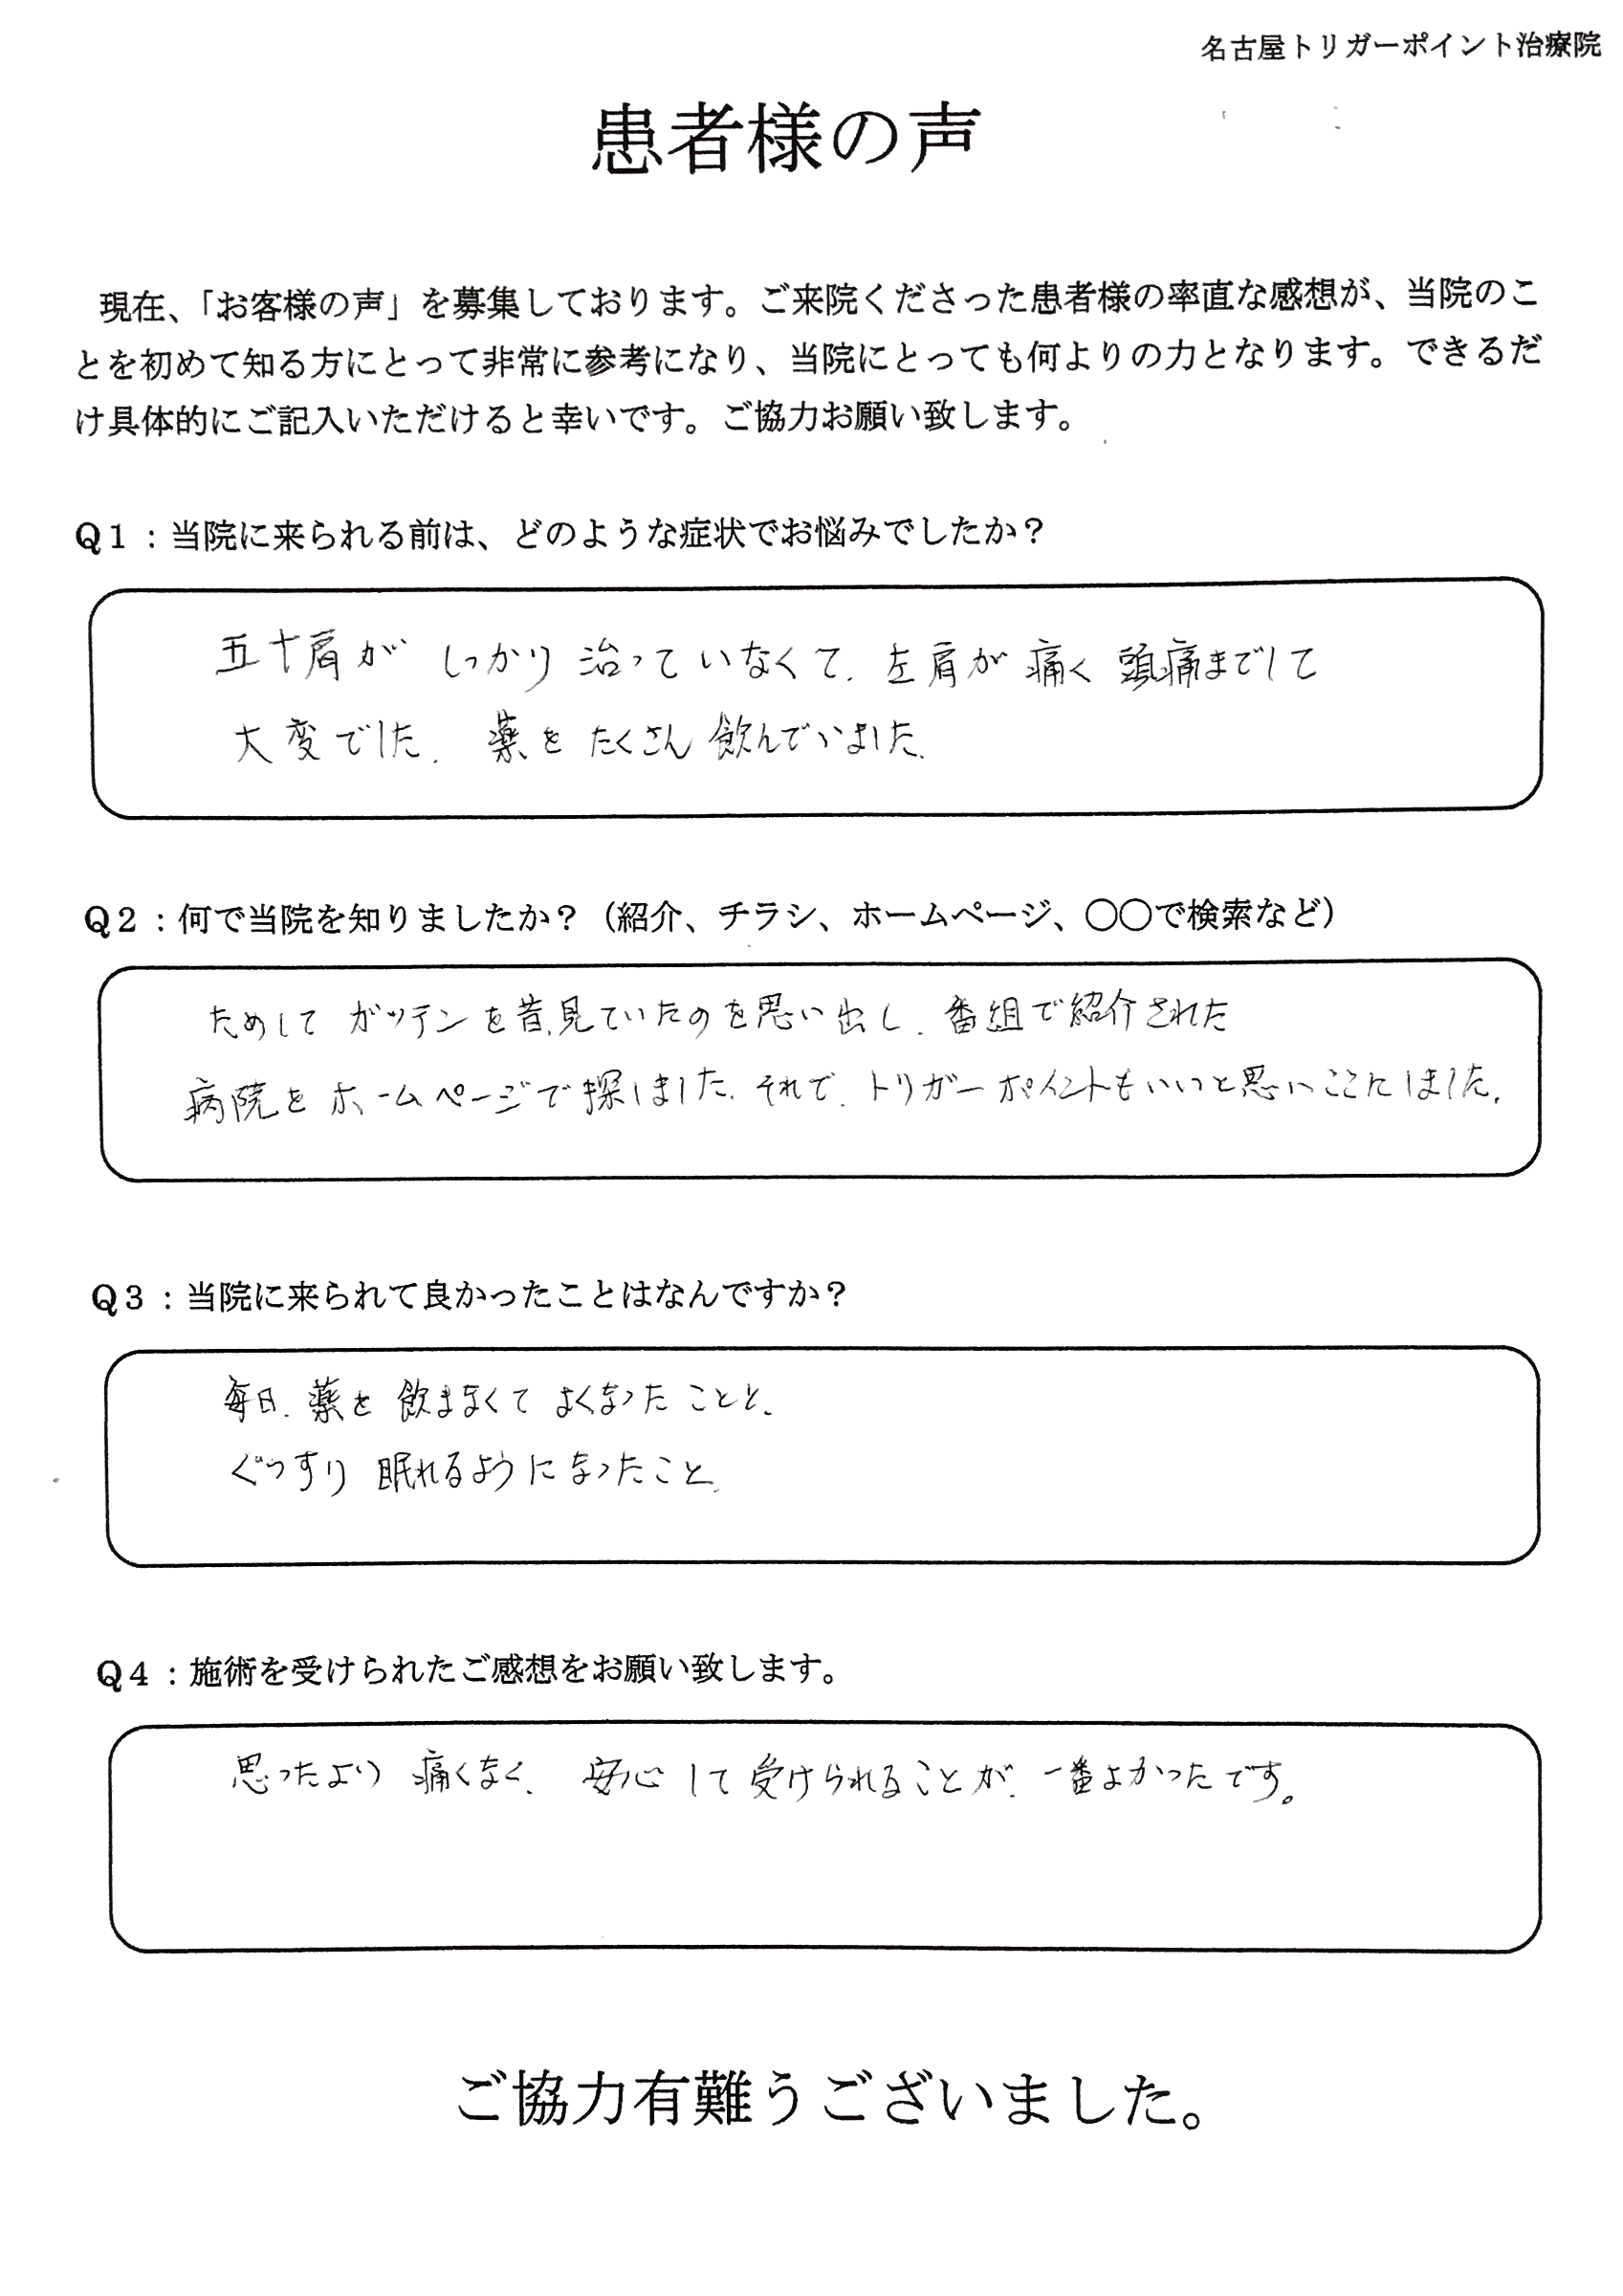 名古屋トリガーポイント治療院
患者様の声
現在、「お客様の声」を募集しております。ご来院くださった患者様の率直な感想が、当院のこ
とを初めて知る方にとって非常に参考になり、当院にとっても何よりの力となります。できるだ
け具体的にご記入いただけると幸いです。ご協力お願い致します。
Q1：当院に来られる前は、どのような症状でお悩みでしたか？
五十肩が しっかり 治っていなくて、左肩が 痛く 頭痛までして
大変でした。 薬を たくさん 飲んでいました。
Q2：何で当院を知りましたか？（紹介、チラシ、ホームページ、〇〇で検索など）
ためして ガッテンを昔、見ていたのを思い出し、番組で紹介された
病院を ホームページで探しました。それで、トリガーポイントもいいと思いここにしました。
Q3：当院に来られて良かったことはなんですか？
毎日、薬を 飲まなくて よくなった ことと、
ぐっすり 眠れるように なったこと。
Q4：施術を受けられたご感想をお願い致します。
思ったより 痛くなく、 安心 して 受けられることが、一番よかったです。
ご協力有難うございました。